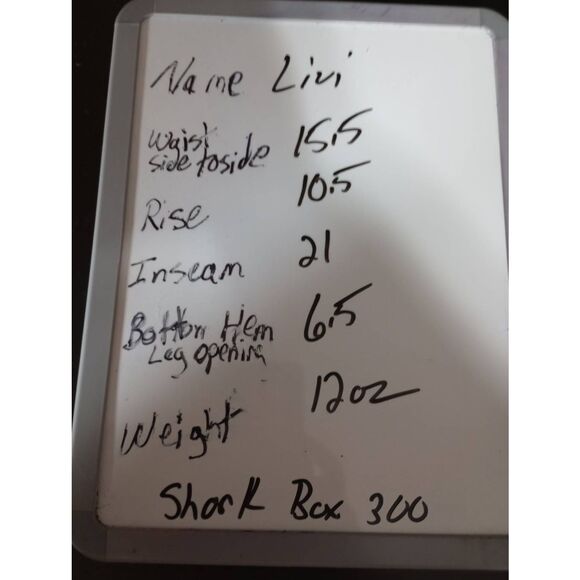 Name Livi
Waist side to side 15.5
Rise 10.5
Inseam 21
Bottom Hem Leg opening 6.5
Weight 12oz
Shark Box 300